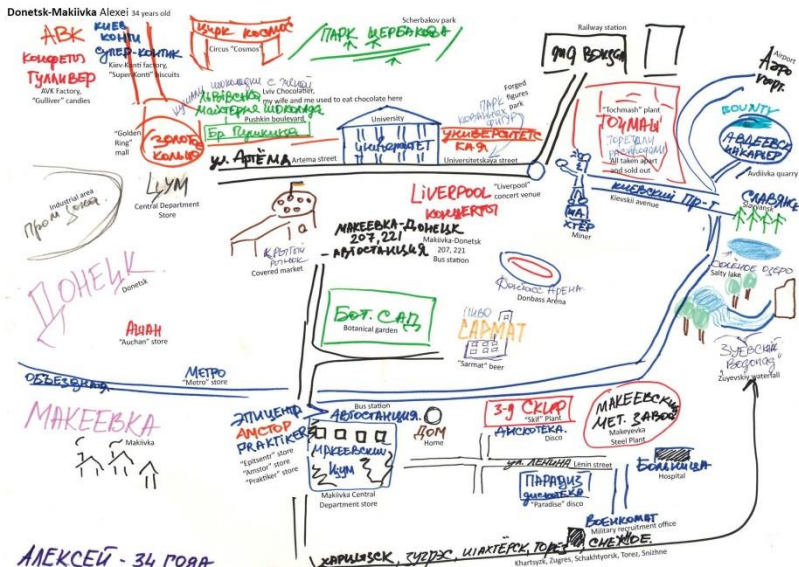 Donetsk-Makiivka Alexei 34 years old
АВК
КОНФЕТЫ
ГУЛЛИВЕР
AVK Factory,
"Gulliver" candies
КИЕВ
КОНТИ
СУПЕР-КОНТИК
Kiev-Konti factory,
"Super-Konti" biscuits
ЦИРК КОСМОС
Circus "Cosmos"
Scherbakov park
ПАРК ЩЕРБАКОВА
Railway station
ЖД ВОКЗАЛ
Airport
АЭРО
ПОРТ.
ШОКОЛАДКИ С ЖЕНОЙ
ЛЬВІВСЬКА
МАЙСТЕРНЯ ШОКОЛАДА
Lviv Chocolatier,
my wife and me used to eat chocolate here
Pushkin boulevard
БР. ПУШКИНА
"Golden
Ring"
mall
ЗОЛОТОЕ
КОЛЬЦО
University
УНИВЕРСИТЕТ
Forged
figures
park
ПАРК
КОВАННЫХ
ФИГУР
УНИВЕРСИТЕТС
КАЯ
Universitetskaya street
"Tochmash" plant
ТОЧМАШ
All taken apart
and sold out
BOUNTY
АВДЕЕВСКИЙ
КАРЬЕР
Avdiivka quarry
УЛ. АРТЁМА
Artema street
ЦУМ
Central Department
Store
Industrial area
ПРОМ ЗОНА
КРЫТЫЙ
РЫНОК
Covered market
LIVERPOOL
КОНЦЕРТЫ
"Liverpool"
concert venue
ШАХТЁР
Miner
КИЕВСКИЙ ПР-Т
Kievskii avenue
СЛАВЯНСК
Slavyansk
МАКЕЕВКА-ДОНЕЦК
207, 221
-АВТОСТАНЦИЯ
Makiivka-Donetsk
207, 221
Bus station
ДОНБАСС АРЕНА
Donbass Arena
СОЛЁНОЕ ОЗЕРО
Salty lake
ДОНЕЦК
Donetsk
БОТ. САД
Botanical garden
ПИВО
САРМАТ
"Sarmat" beer
АШАН
"Auchan" store
ЗУЕВСКИЙ
ВОДОПАД
Zuyevskiy waterfall
ОБЪЕЗДНАЯ
МЕТРО
"Metro" store
МАКЕЕВКА
Makiivka
ЭПИЦЕНТР
АМСТОР
PRAKTIKER
"Epitsentr" store
"Amstor" store
"Praktiker" store
Bus station
АВТОСТАНЦИЯ.
МАКЕЕВСКИЙ
ЦУМ
Makiivka Central
Department store
ДОМ
Home
З-Д СКИФ
"Skif" Plant
ДИСКОТЕКА.
Disco
МАКЕЕВСКИЙ
МЕТ. ЗАВОД
Makeyevka
Steel Plant
УЛ. ЛЕНИНА
Lenin street
БОЛЬНИЦА
Hospital
ПАРАДИЗ
ДИСКОТЕКА
"Paradise" disco
ВОЕНКОМАТ
Military recruitment office
АЛЕКСЕЙ - 34 ГОДА
ХАРЦЫЗСК, ЗУГРЭС, ШАХТЁРСК, ТОРЕЗ, СНЕЖНОЕ.
Khartsyzk, Zugres, Schakhtyorsk, Torez, Snizhne